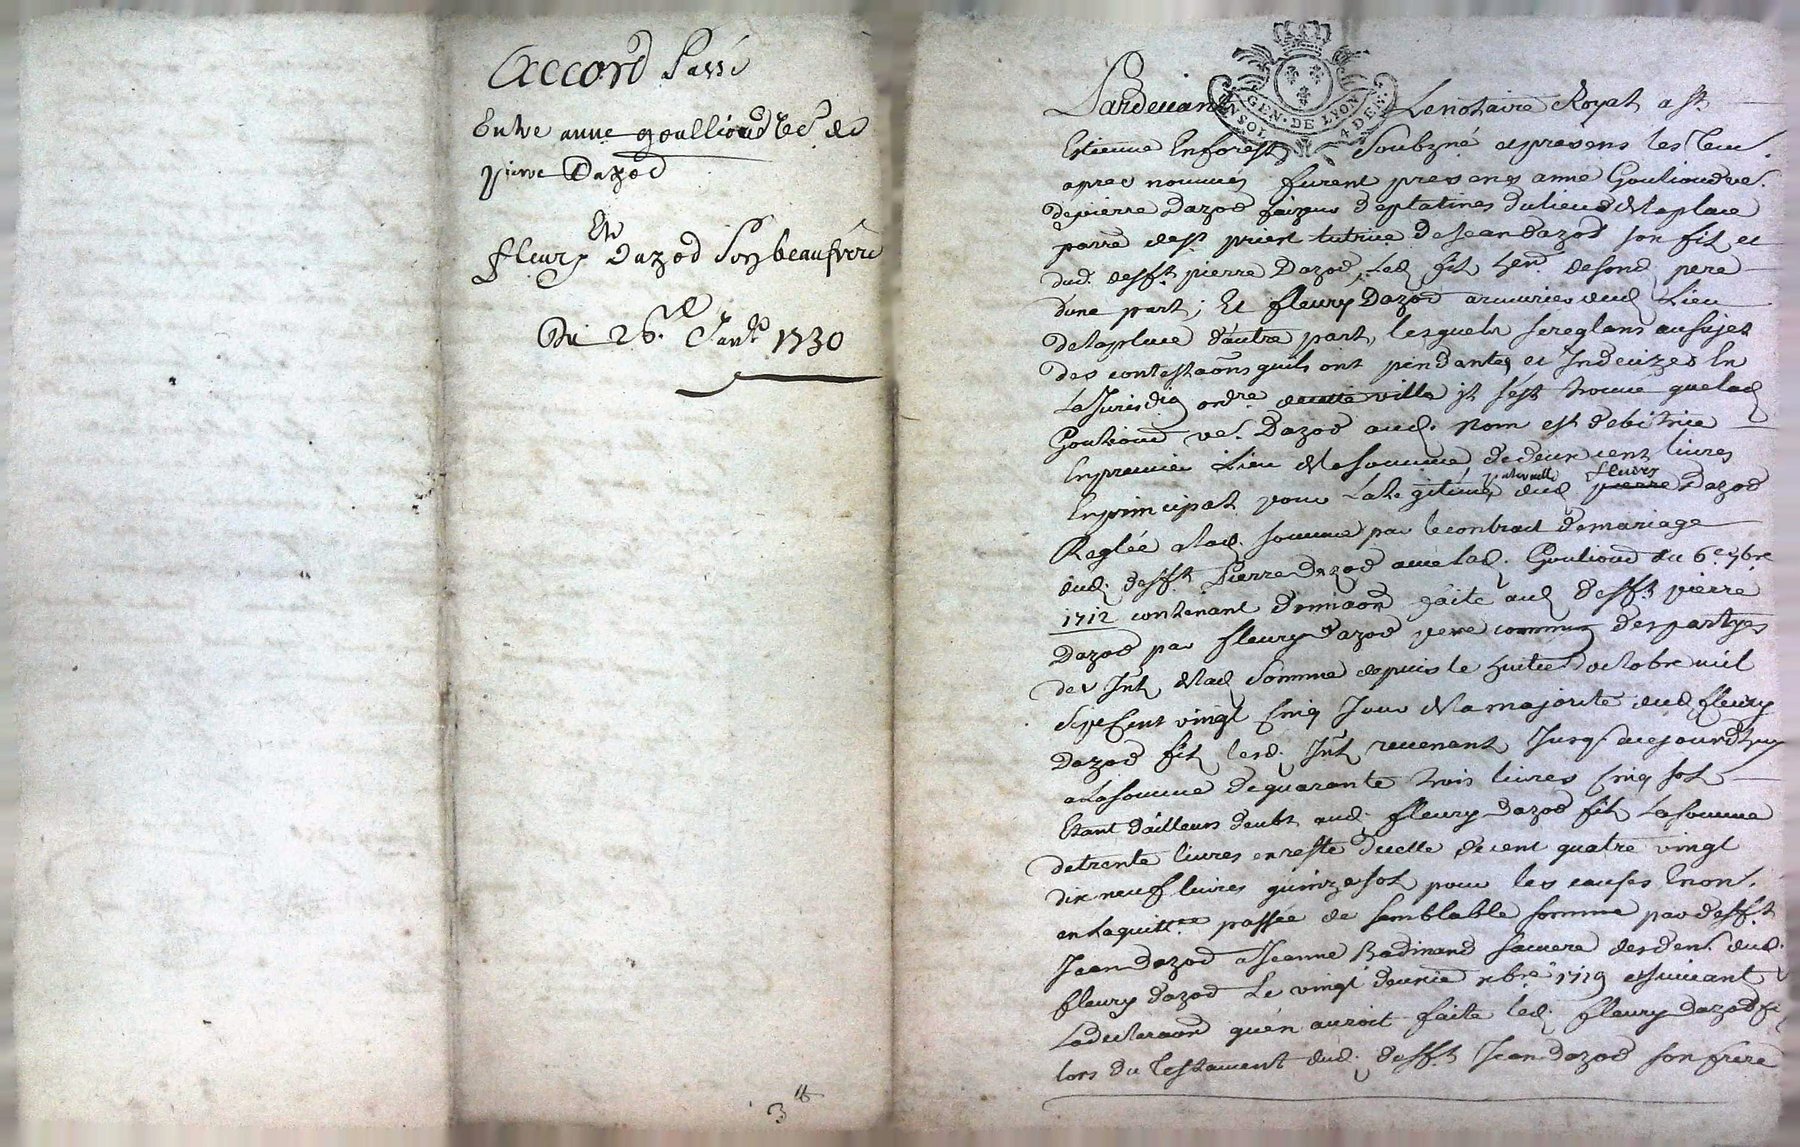 Accord Passé
Entre anne goullioud ve. de
pierre Dazod
Et
fleury Dazod Son beaufrere
Du 26.e Janr. 1730
3 tt
GEN. DE LYON
SOL 4 DE
Pardevant Le notaire Royal a St
Estienne En forest Soubzné et presens les tem.
apres nommés furent presens anne Goullioud ve.
de pierre Dazod faizeur de platines du lieu de la place
parre de St priest tutrice de Jean Dazod son fil et
dud. defft. pierre Dazod, Led. fil de fond pere
d'une part; Et fleury Dazod armurier dud. Lieu
de la place d'autre part, lesquels se reglans au sujet
des contestaons quils ont pendantes et Indecizes En
La Jurisdion ordre. de cette ville il s'est trouvé que lad.
Goullioud ve. Dazod aud. nom est debitrice
En premier Lieu de la somme de deux cent livres
paternelle fleury
En principal pour La Legitime dud. pierre Dazod
Reglée a lad. somme par le contract de mariage
dud. defft. Pierre Dazod avec lad. Goullioud du 6.e 7bre
1712 contenant donnaon faite aud. defft. pierre
Dazod par fleury Dazod pere commun des partyes
des Int. de lad. Somme depuis le huitie. octobre mil
Sept Cent vingt Cinq Jour de la majorité dud. fleury
Dazod fil lesd. Int. revenant Jusq. aujourdhuy
a La somme de quarante trois livres Cinq sol
Etant d'ailleurs deubt aud. fleury Dazod fil La somme
de trente livres en reste d'icelle de cent quatre vingt
dix neuf livres quinze sol pour les causes Enon.
en La quitt.ce passée de semblable somme par defft.
Jean Dazod a Jeanne Badinand sa mere dud.
fleury Dazod Le vingt deuxie. 1719 et suivant
La declaraon qu'en auroit faite led. fleury Dazod fi
lors du Testament dud. defft. Jean Dazod son frere